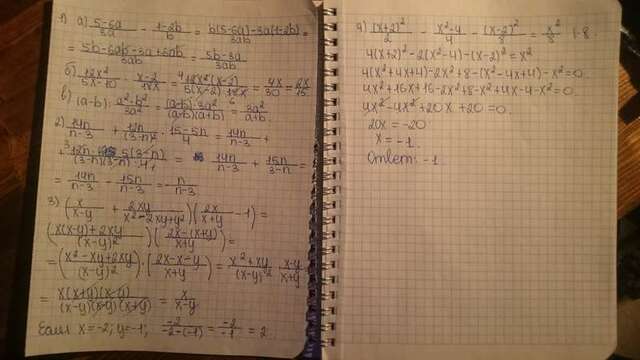 1) а) (5-6a)/3a - (1-2b)/b = (b(5-6a)-3a(1-2b))/3ab =
= (5b-6ab-3a+6ab)/3ab = (5b-3a)/3ab
б) 12x²/(5x-10) · (x-2)/18x = 12x²(x-2)/(5(x-2)·18x) = 4x/30 = 2x/15
в) (a-b): (a²-b²)/3a² = (a-b)·3a²/((a-b)(a+b)) = 3a²/(a+b)
2) 14n/(n-3) + 12n/(3-n)² · (15-5n)/4 = 14n/(n-3) +
+ 12n·5(3-n)/((3-n)(3-n)·4) = 14n/(n-3) + 15n/(3-n) =
= 14n/(n-3) - 15n/(n-3) = -n/(n-3)
3) (x/(x-y) + 2xy/(x²-2xy+y²))(2x/(x+y) -1) =
(x(x-y)+2xy)/(x-y)² (2x-(x+y))/(x+y) =
= ((x²-xy+2xy)/(x-y)²)·((2x-x-y)/(x+y)) = (x²+xy)/(x-y)² · (x-y)/(x+y)
= x(x+y)(x-y)/((x-y)(x-y)(x+y)) = x/(x-y)
Если x=-2; y=-1, -2/(-2-(-1)) = -2/-1 = 2
4) (x+2)²/2 - (x²-4)/4 - (x-2)²/8 = x²/8 |·8
4(x+2)²-2(x²-4)-(x-2)²=x²
4(x²+4x+4)-2x²+8-(x²-4x+4)-x²=0
4x²+16x+16-2x²+8-x²+4x-4-x²=0.
4x²-4x²+20x+20=0.
20x=-20
x=-1.
Ответ: -1